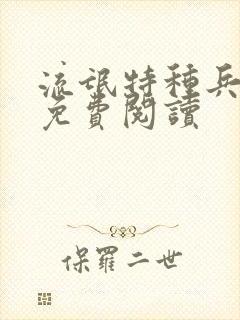 流氓特種兵
免費閱讀
保羅二世